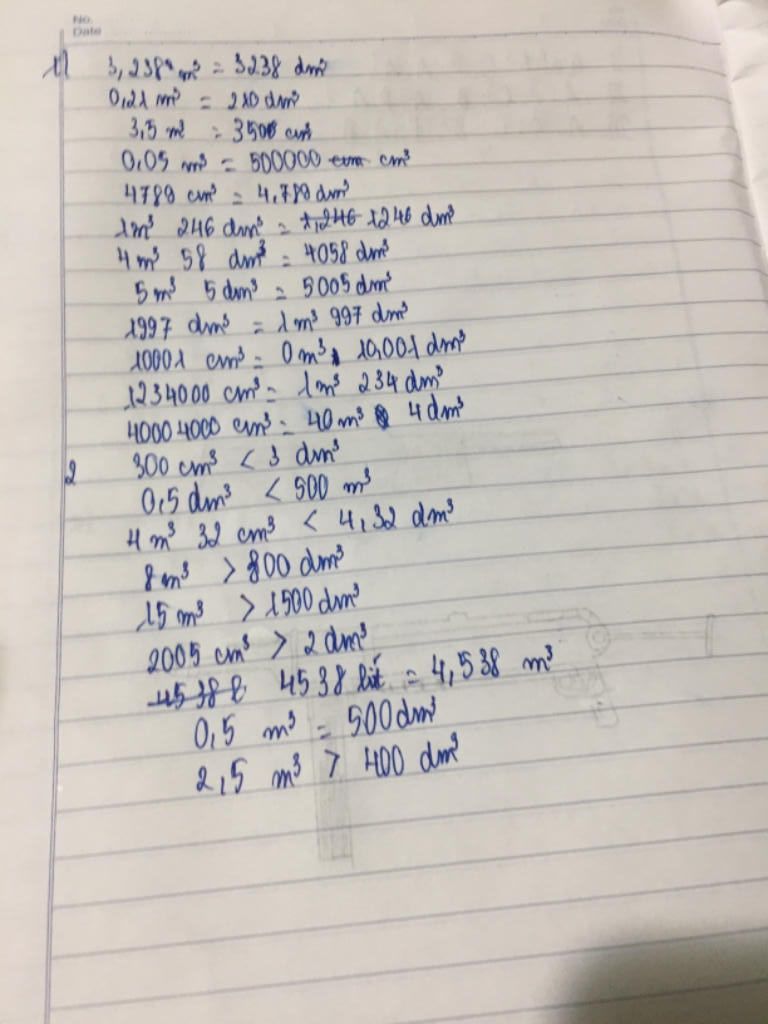 No.
Date
1) 3,238 m³ = 3238 dm³
0,21 m³ = 210 dm³
3,5 m³ = 3500 cm³
0,05 m³ = 500000 cm³
4789 cm³ = 4,789 dm³
1m³ 246 dm³ = 1,246 1246 dm³
4 m³ 58 dm³ = 4058 dm³
5 m³ 5 dm³ = 5005 dm³
1997 dm³ = 1 m³ 997 dm³
10001 cm³ = 0 m³ 10,001 dm³
1234000 cm³ = 1m³ 234 dm³
40004000 cm³ = 40 m³ 4 dm³
2 300 cm³ < 3 dm³
0,5 dm³ < 500 m³
4 m³ 32 cm³ < 4,32 dm³
8 m³ > 800 dm³
15 m³ > 1500 dm³
2005 cm³ > 2 dm³
4538 l 4538 lít = 4,538 m³
0,5 m³ = 500 dm³
2,5 m³ > 400 dm³